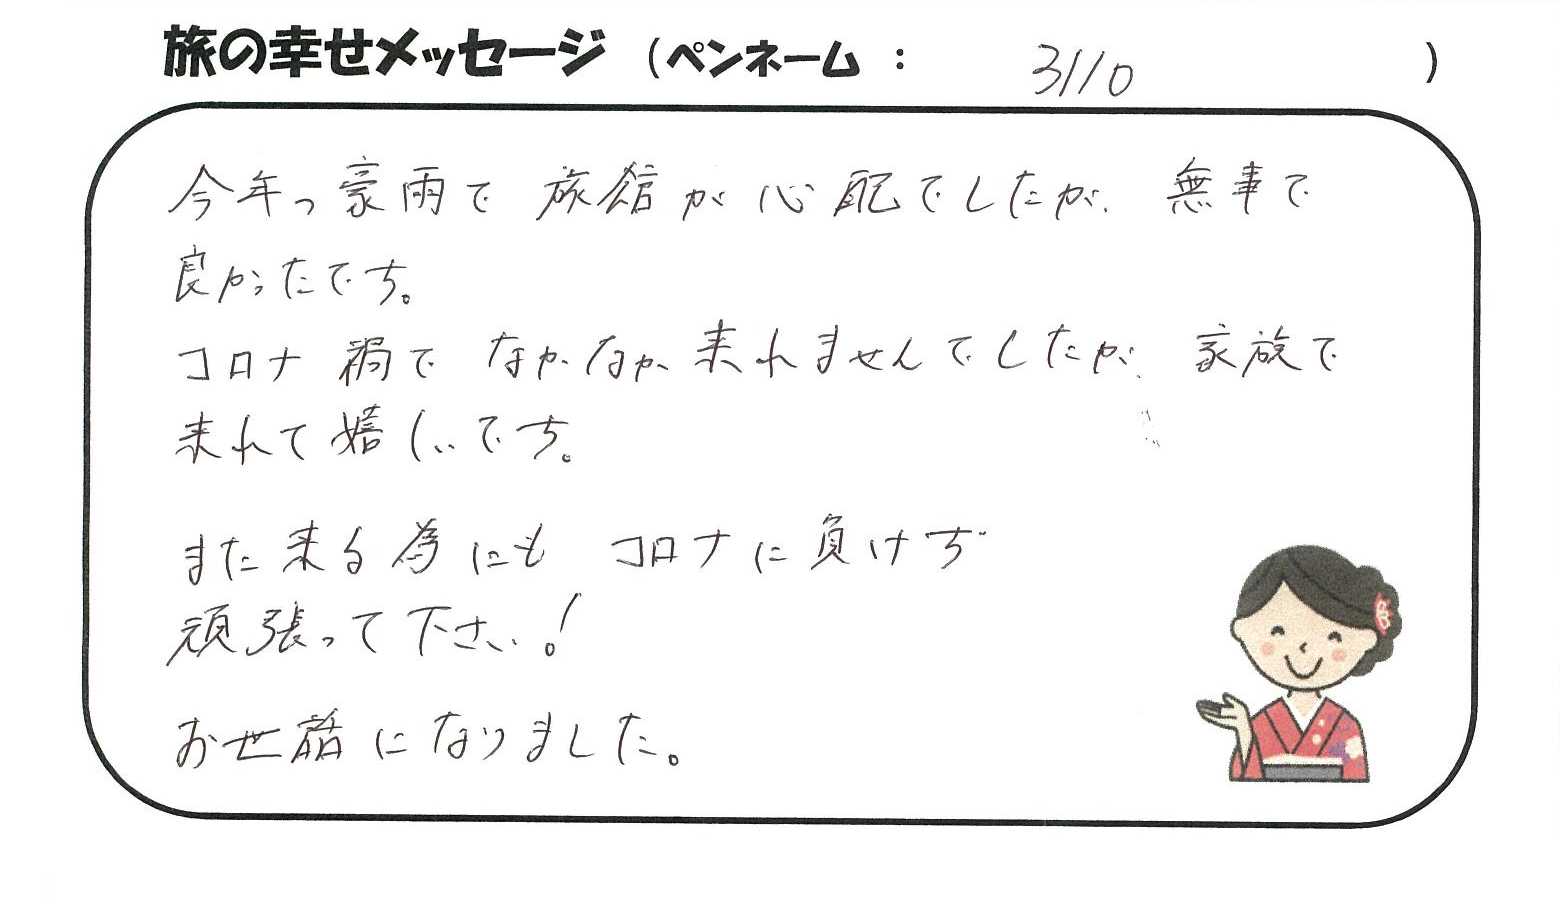 旅の幸せメッセージ (ペンネーム : 3110 )
今年の豪雨で 旅館が心配でしたが、無事で
良かったです。
コロナ禍で なかなか来れませんでしたが、家族で
来れて嬉しいです。
また来る為にも コロナに負けず
頑張って下さい!
お世話になりました。